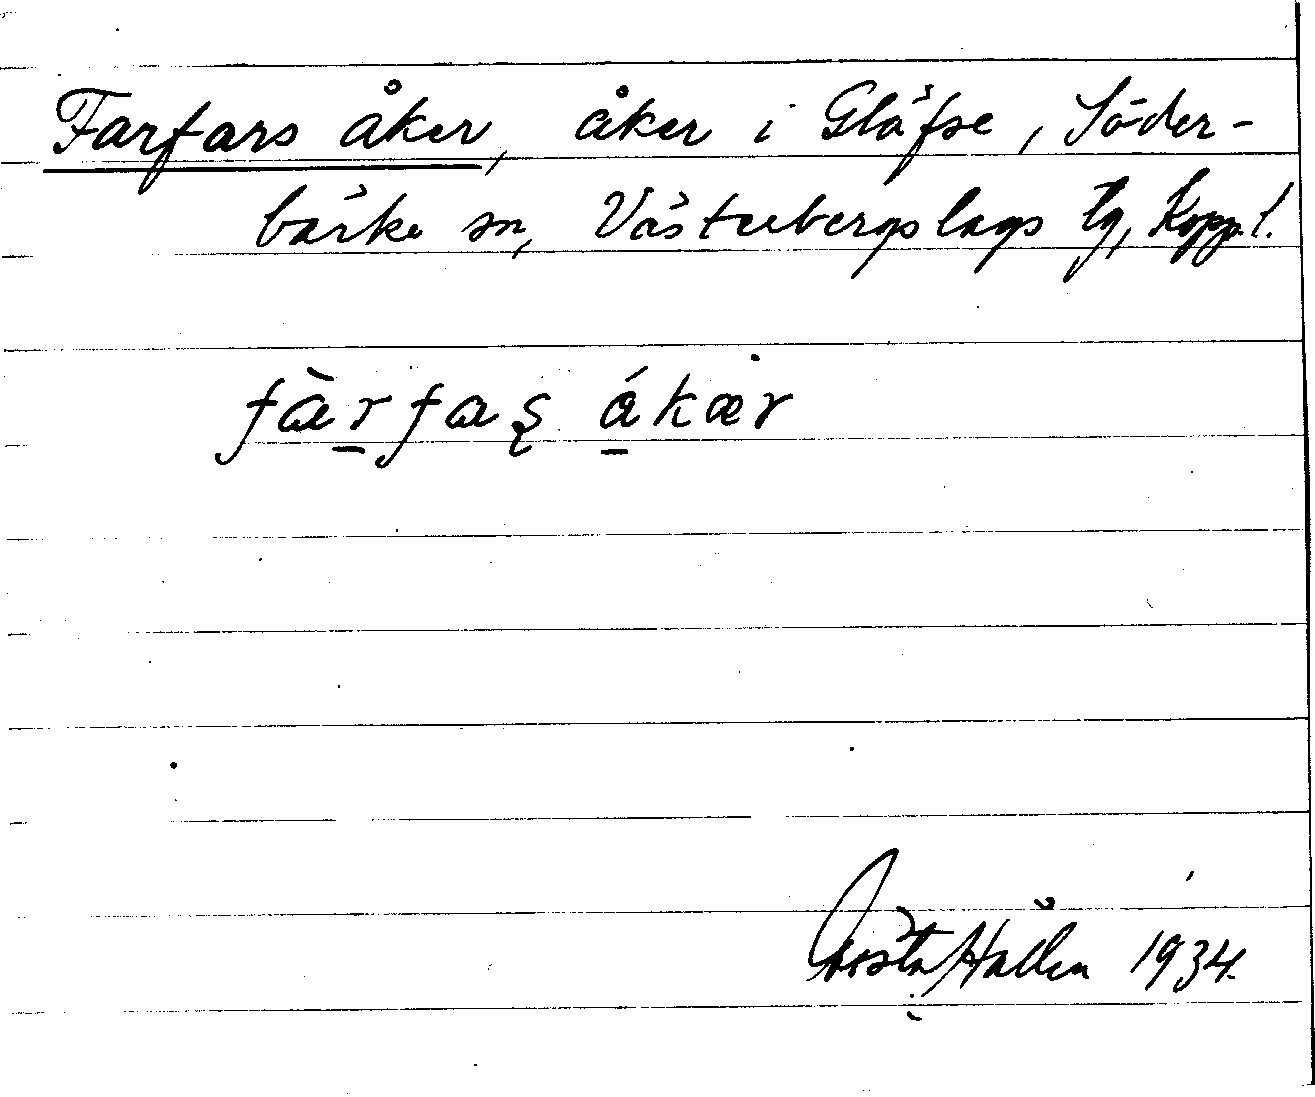 Farfars åker, åker i Gläfse, Söder-
bärke sn, Västerbergslags tg, Kopp. l.
fàr̠faʂ á̠kær
Gösta Hallén 1934.